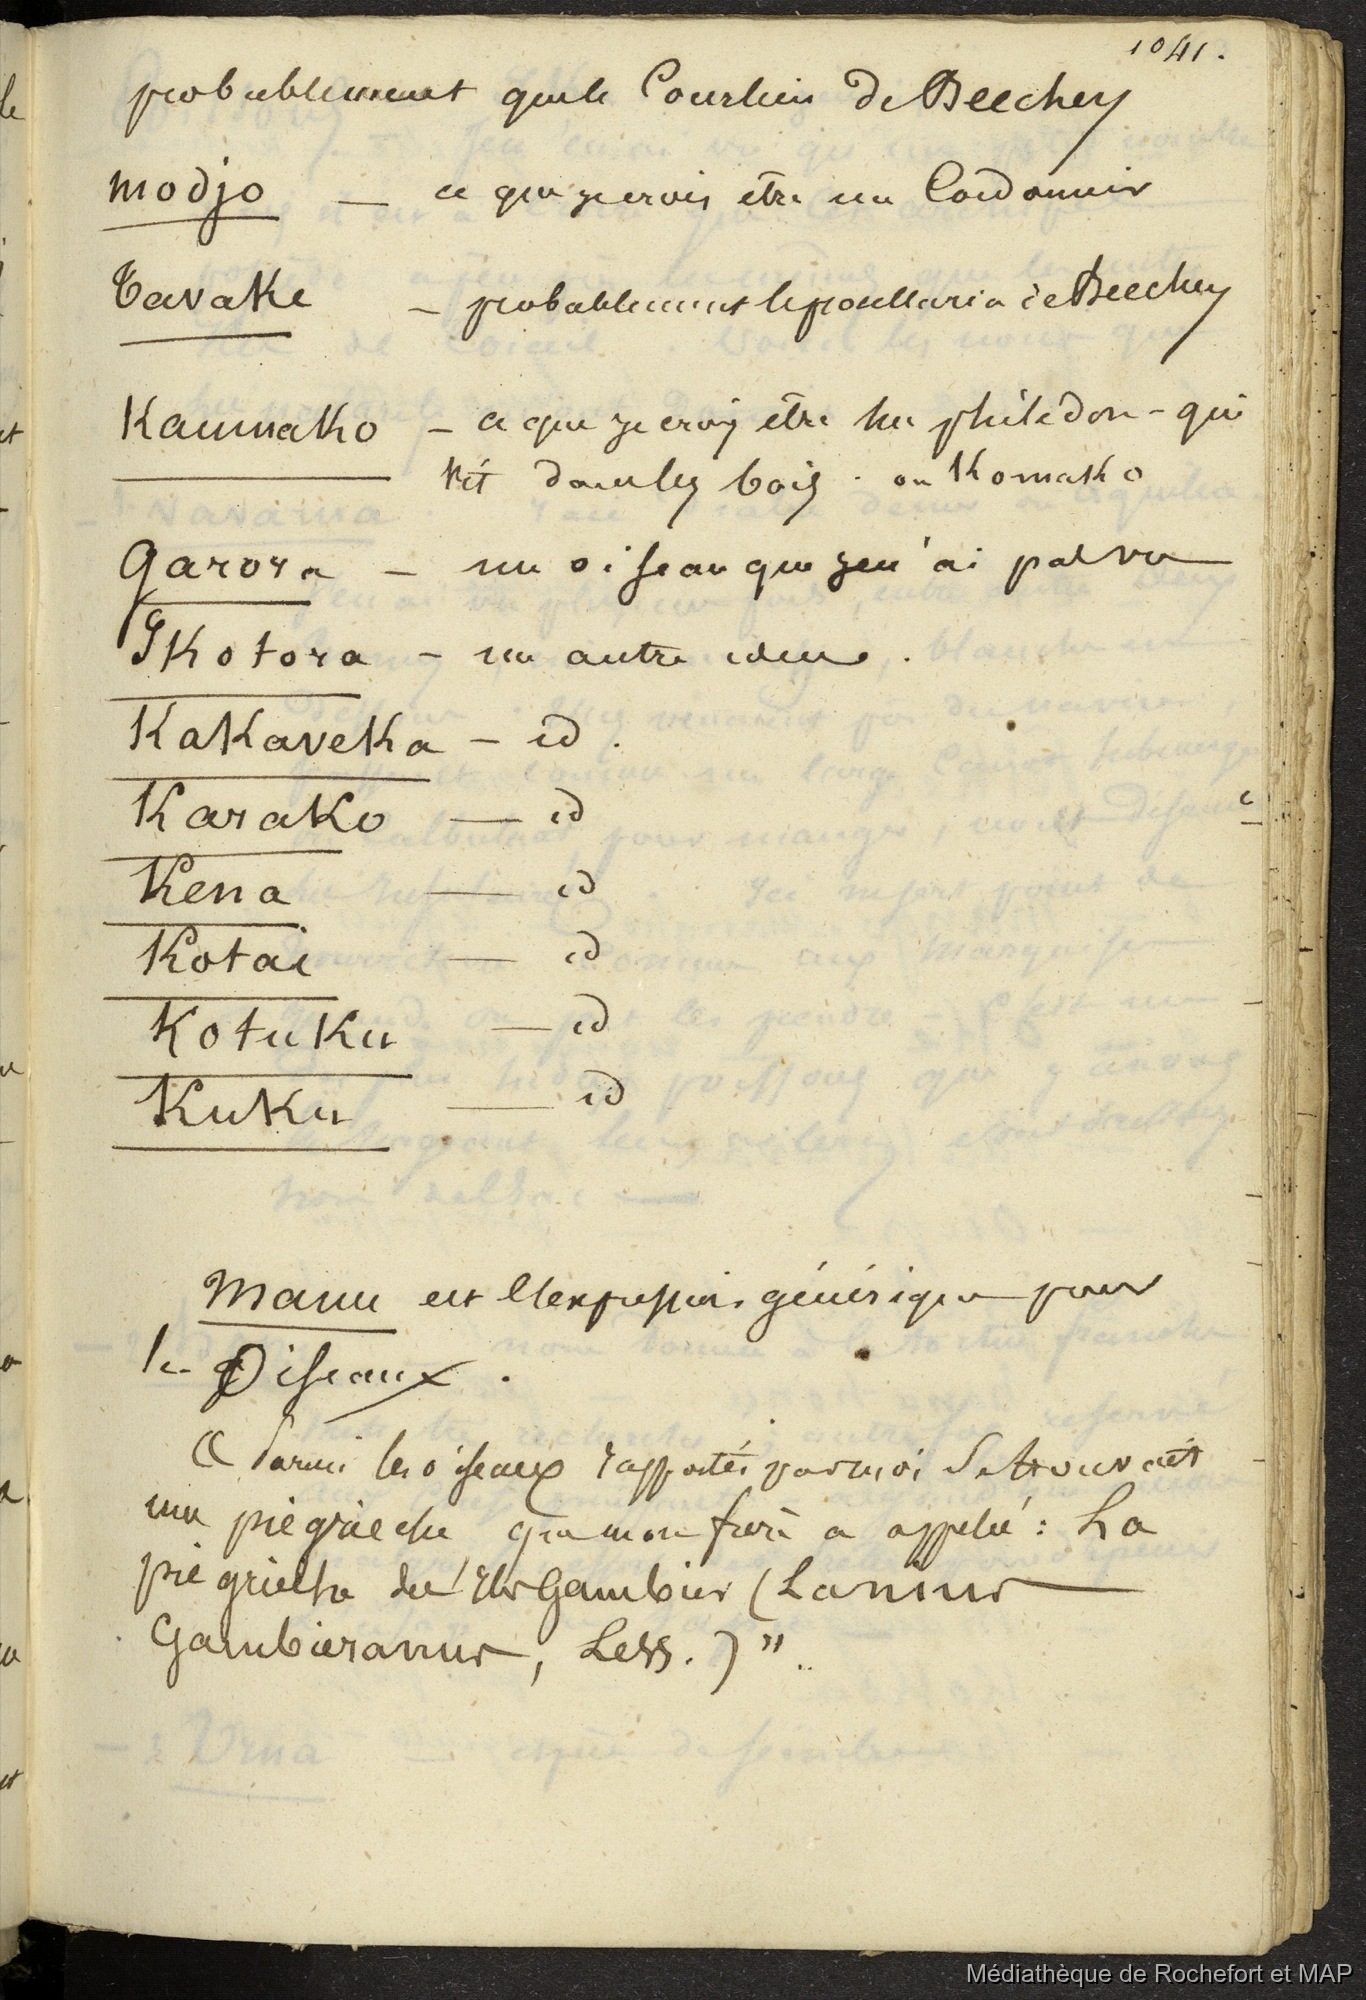 1041.
probablement que le Courlieu de Beechey
modjo — ce que je crois être un Cordonnier
Tavake — probablement le procellaria de Beechey
Kaumako — ce que je crois être un philédon - qui
vit dans les bois . ou Komako
Garora — un oiseau que je n'ai pas vu
Kotora — un autre idem .
KaKaveKa — id .
KaraKo — id
Kena — id
Kotai — id
KotuKu — id
KuKu — id
Manu est l'expression générique pour
les Oiseaux .
« Parmi les oiseaux rapportés par moi se trouvait
une piegrièche que mon frère a appelé : La
pie grièche des îles Gambier (Lanius
Gambieranus, Less.) "..
Médiathèque de Rochefort et MAP